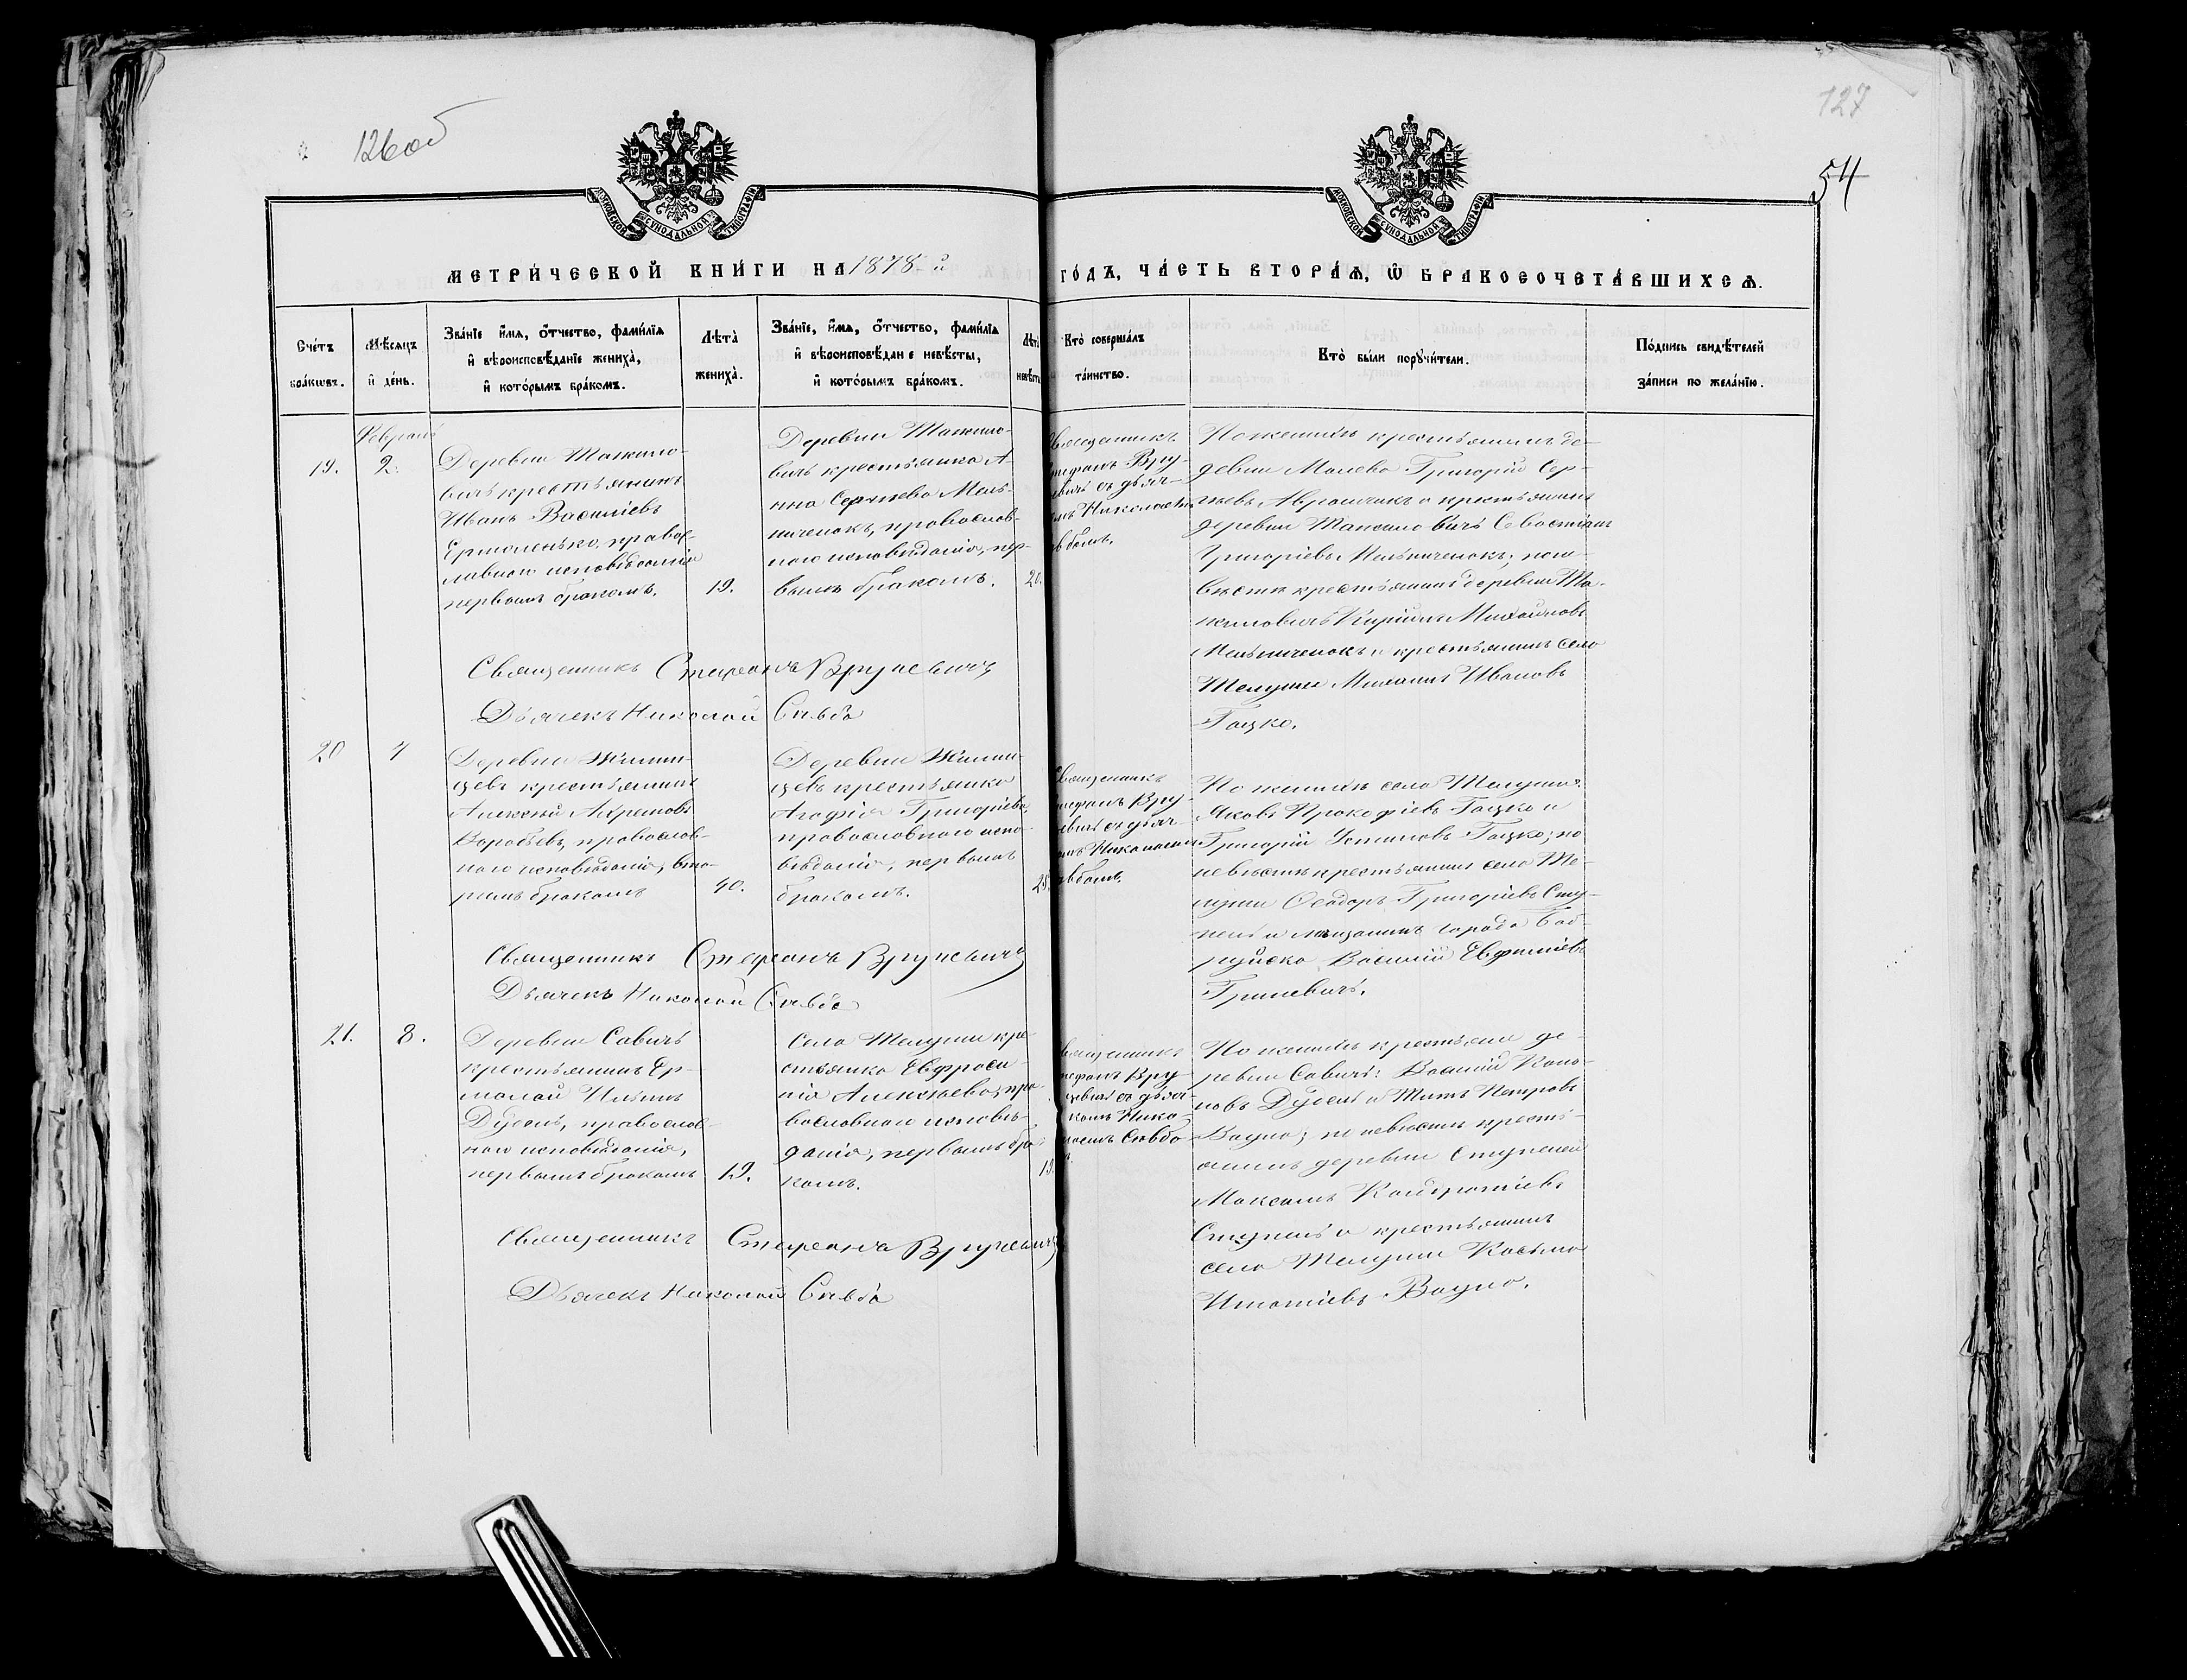 126 об
127
54
МОСКОВСКОЙ СѴНОДАЛЬНОЙ ТИПОГРАФІИ
МОСКОВСКОЙ СѴНОДАЛЬНОЙ ТИПОГРАФІИ
МЕТРИ́ЧЕСКОЙ КНИ́ГИ НА 1878 й ГО́ДЪ, ЧА́СТЬ ВТОРА́Ѧ, Ѡ҆ БРАКОСОЧЕТА́ВШИХСѦ.
Сче́тъ
бра́кѡвъ.
Мѣ́сяцъ
и҆ де́нь.
Зва́нїе и҆́мѧ, ѻ҆́тчество, фами́лїѧ
и҆ вѣроисповѣ́данїе жениха̀,
и҆ кото́рымъ бра́комъ.
Лѣта̀
жениха̀.
Зва́нїе, и҆́мѧ, ѻ҆́тчество, фами́лїѧ
и҆ вѣроисповѣ́данїе невѣ́сты,
и҆ кото́рымъ бра́комъ.
Лѣта̀
невѣсты
Кто̀ соверша́лъ
та́инство.
Кто̀ бы́ли порꙋчи́тели.
По́дпись свидѣ́телей
за́писи по жела́нїю.
19.
Февраль
2.
Деревни Тажило-
вичъ крестьянинъ
Иванъ Василіевъ
Ермоленько, право-
славнаго исповѣданія
первымъ бракомъ.
19.
Деревни Тажило-
вичъ крестьянка А-
нна Сергѣева Мель-
ниченокъ, православ-
наго исповѣданія, пер-
вымъ бракомъ.
20.
Священникъ
Стефанъ Вру-
евичъ съ дьяч-
комъ Николаемъ
Сѣвбомъ.
По женихѣ крестьянинъ де-
ревни Малево Григорій Сер-
гѣевъ Авраменокъ и крестьянинъ
деревни Тажиловичъ Севастіанъ
Григоріевъ Мельниченокъ; по не-
вѣстѣ крестьянинъ деревни Та-
жиловичъ Кирилъ Михайловъ
Мельниченокъ и крестьянинъ села
Телуши Михаилъ Ивановъ
Гацко.
Священникъ Стефанъ Вруцевичъ
Дьячекъ Николай Сѣвба
20
4
Деревни Жилин-
цевъ крестьянинъ
Алексѣй Ахремовъ
Воробьевъ, православ-
наго исповѣданія, вто-
рымъ бракомъ
40.
Деревни Жилин-
цевъ крестьянка
Агафія Григоріева
православнаго испо-
вѣданія, первымъ
бракомъ.
25.
Священникъ
Стефанъ Вру-
евичъ съ дьяч-
комъ Николаемъ
Сѣвбомъ.
По женихѣ села Телуши
Яковъ Прокофіевъ Гацко и
Григорій Устиновъ Гацко; по
невѣстѣ крестьянинъ села Те-
луши Ѳеодоръ Григоріевъ Сту-
пень и мѣщанинъ города Боб-
руйска Василій Евфиміевъ
Гриневичъ.
Священникъ Стефанъ Вруцевичъ
Дьячекъ Николай Сѣвба
21.
8.
Деревни Савичъ
крестьянинъ Ер-
молай Ильинъ
Дубель, православ-
наго исповѣданія,
первымъ бракомъ
19.
Села Телуши кре-
стьянка Евфроси-
нія Алексѣева, пра-
вославнаго исповѣ-
данія, первымъ бра-
комъ.
19.
Священникъ
Стефанъ Вру-
цевичъ съ дьяч-
комъ Нико-
лаемъ Сѣвбо-
мъ.
По женихѣ крестьяне де-
ревни Савичъ: Василій Коно-
новъ Дубель и Титъ Петровъ
Вадило; по невѣстѣ кресть-
янинъ деревни Ступеней
Максимъ Кондратіевъ
Ступень и крестьянинъ
села Телуши Косьма
Игнатіевъ
Священникъ Стефанъ Вруцевичъ
Дьячекъ Николай Сѣвба